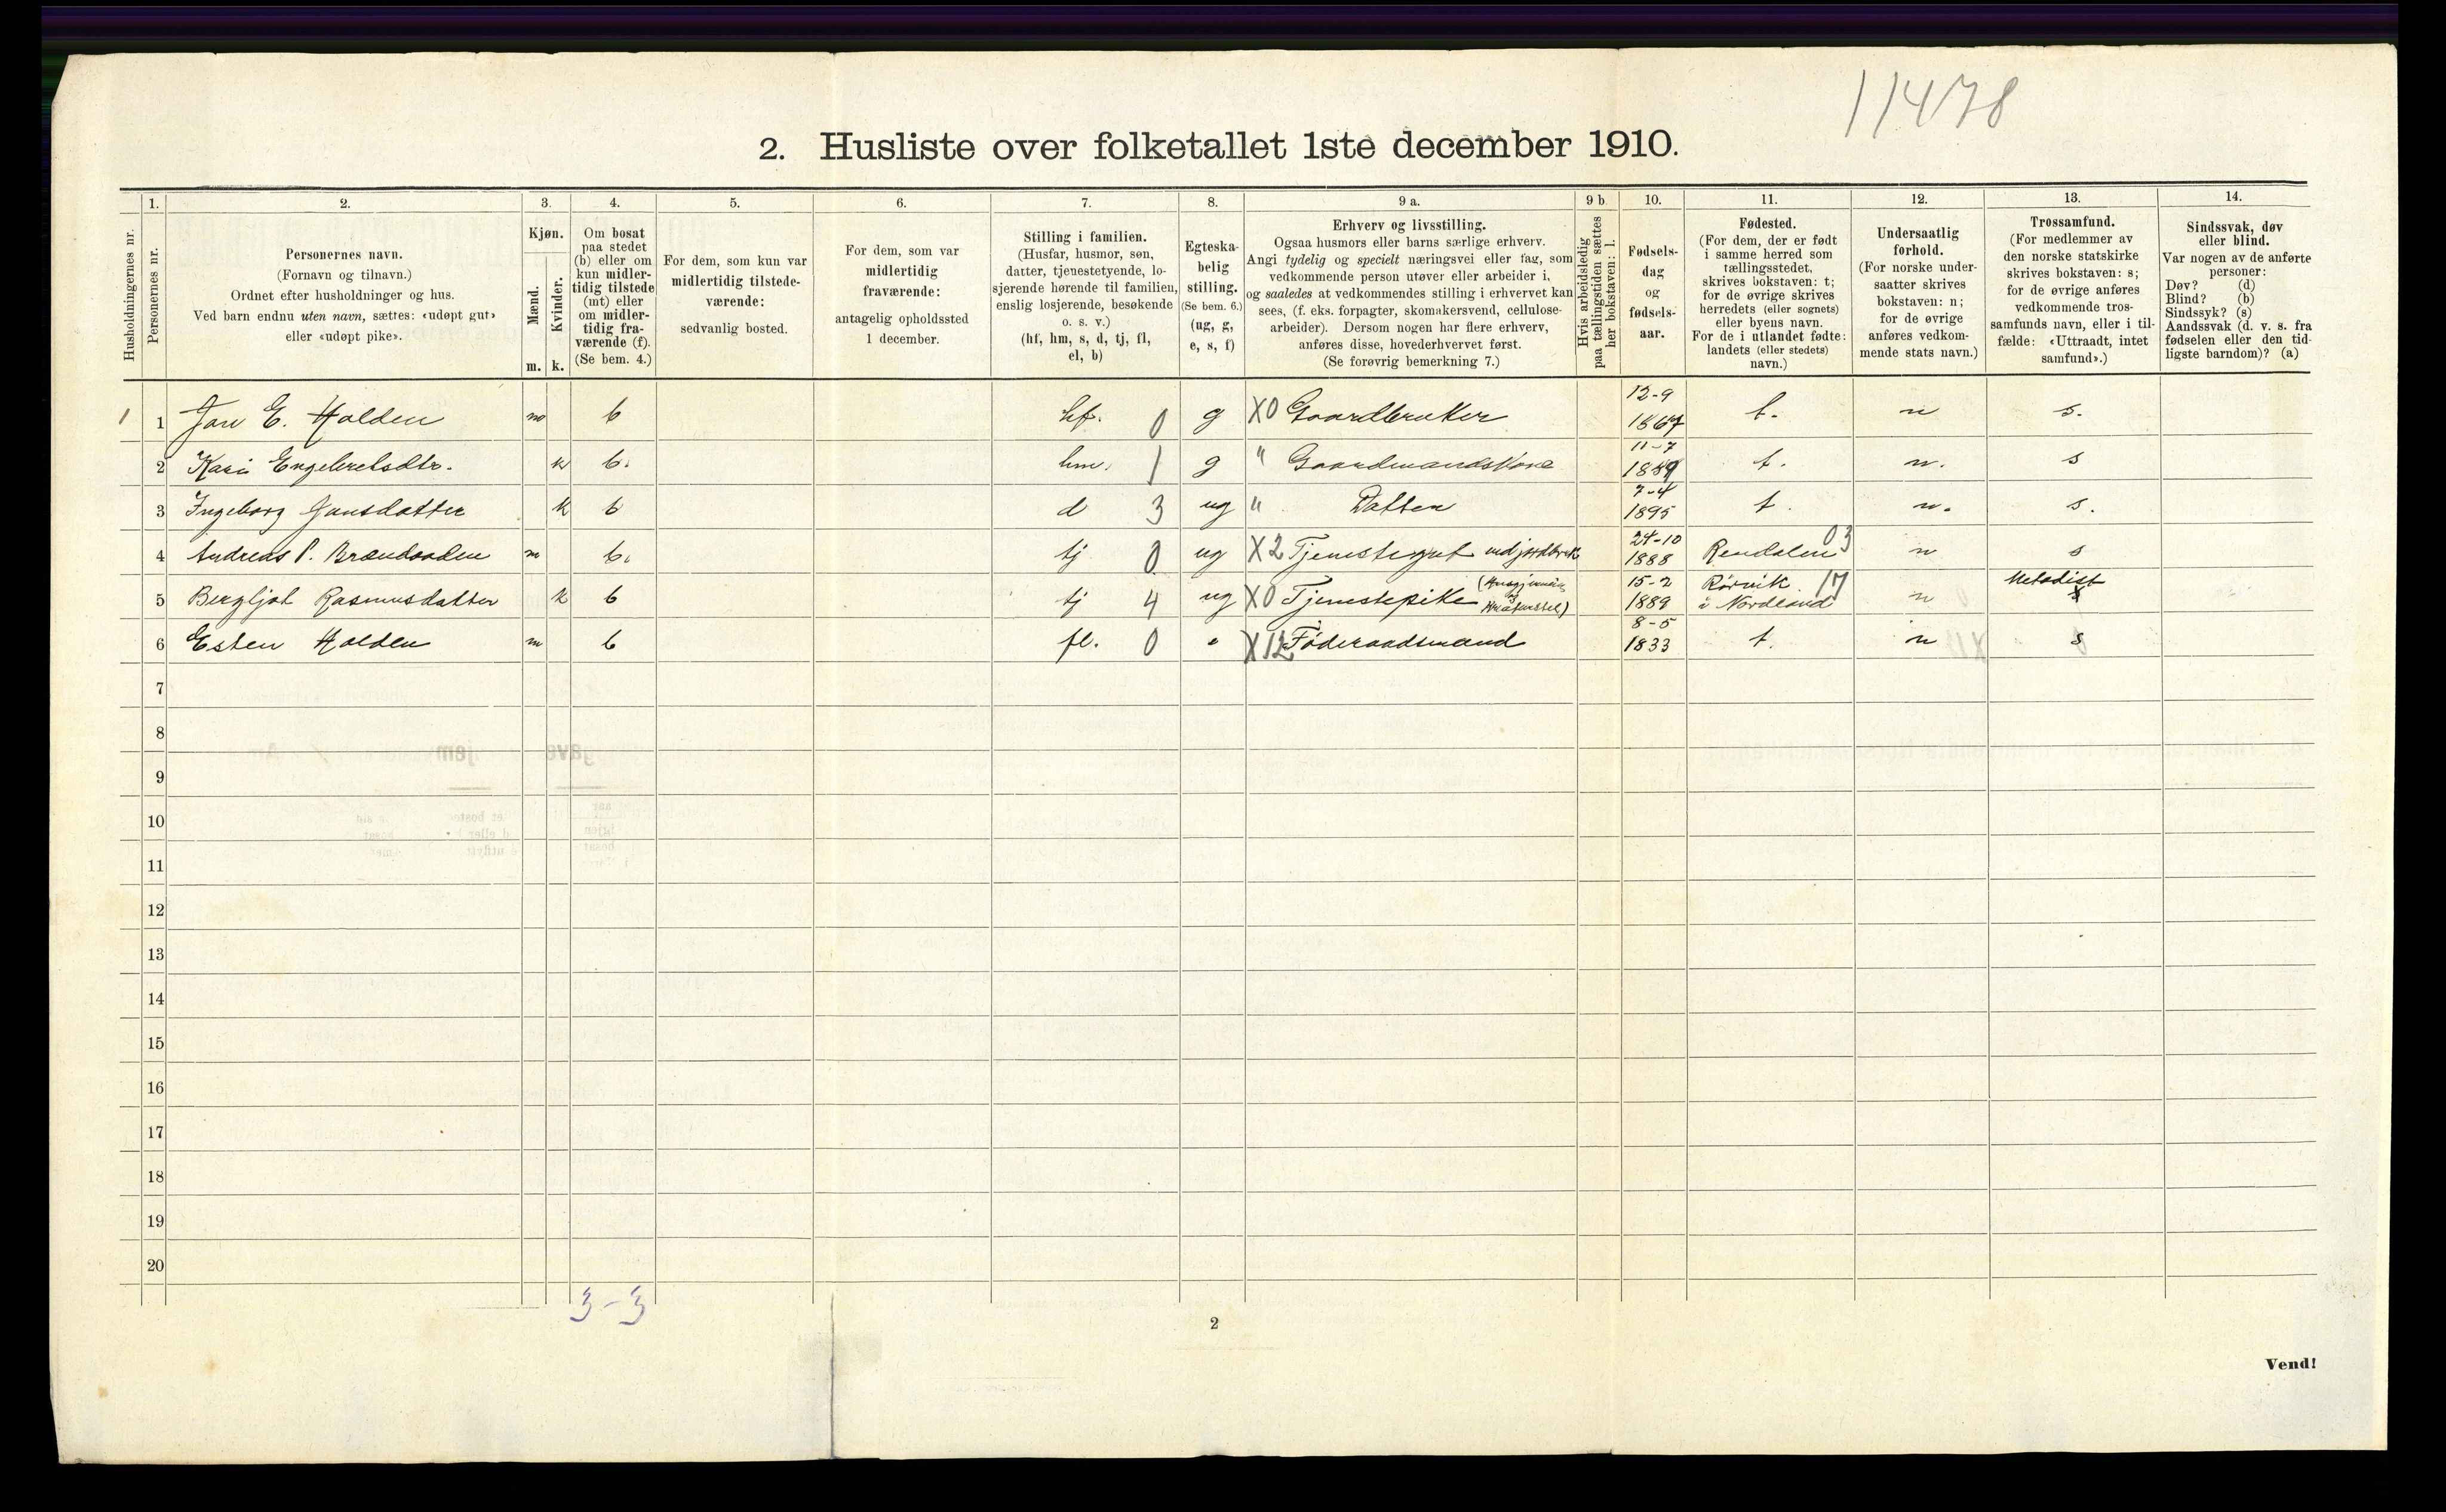 11478
2. Husliste over folketallet 1ste december 1910.
Husholdningernes nr.
1.
Personernes nr.
2.
Personernes navn.
(Fornavn og tilnavn.)
Ordnet efter husholdninger og hus.
Ved barn endnu uten navn, sættes: «udøpt gut»
eller «udøpt pike».
3.
Kjøn.
Mænd.
m.
Kvinder.
k.
4.
Om bosat
paa stedet
(b) eller om
kun midler-
tidig tilstede
(mt) eller
om midler-
tidig fra-
værende (f).
(Se bem. 4.)
5.
For dem, som kun var
midlertidig tilstede-
værende:
sedvanlig bosted.
6.
For dem, som var
midlertidig
fraværende:
antagelig opholdssted
1 december.
7.
Stilling i familien.
(Husfar, husmor, søn,
datter, tjenestetyende, lo-
sjerende hørende til familien,
enslig losjerende, besøkende
o. s. v.)
(hf, hm, s, d, tj, fl,
el, b)
8.
Egteska-
belig
stilling.
(Se bem. 6.)
(ug, g,
e, s, f)
9 a.
Erhverv og livsstilling.
Ogsaa husmors eller barns særlige erhverv.
Angi tydelig og specielt næringsvei eller fag, som
vedkommende person utøver eller arbeider i,
og saaledes at vedkommendes stilling i erhvervet kan
sees, (f. eks. forpagter, skomakersvend, cellulose-
arbeider). Dersom nogen har flere erhverv,
anføres disse, hovederhvervet først.
(Se forøvrig bemerkning 7.)
9 b
Hvis arbeidsledig
paa tællingstiden sættes
her bokstaven: l.
10.
Fødsels-
dag
og
fødsels-
aar.
11.
Fødested.
(For dem, der er født
i samme herred som
tællingsstedet,
skrives bokstaven: t;
for de øvrige skrives
herredets (eller sognets)
eller byens navn.
For de i utlandet fødte:
landets (eller stedets)
navn.)
12.
Undersaatlig
forhold.
(For norske under-
saatter skrives
bokstaven: n;
for de øvrige
anføres vedkom-
mende stats navn.)
13.
Trossamfund.
(For medlemmer av
den norske statskirke
skrives bokstaven: s;
for de øvrige anføres
vedkommende tros-
samfunds navn, eller i til-
fælde: «Uttraadt, intet
samfund».)
14.
Sindssvak, døv
eller blind.
Var nogen av de anførte
personer:
Døv? (d)
Blind? (b)
Sindssyk? (s)
Aandssvak (d. v. s. fra
fødselen eller den tid-
ligste barndom)? (a)
1 1 Jon E. Holden m b hf. 0 g X0 Gaardbruker 12-9 1867 t. n s.
2 Kari Engebretsdtr. k b. hm. 1 g " Gaardmandskone 11-7 t. n. s
3 Ingeborg Jonsdatter k b d 3 ug " Datter 7-4 1895 t. n. s.
4 Andreas P. m b. tj 0 ug X2 Tjenestegut ved jordbruk 24-10 1888 Rendalen 03 n s
5 Bergljot Rasmusdatter k b tj 4 ug X0 Tjenestepike 15-2 1889 Rørvik i Nordland 17 n Metodist
6 Esten Holden m b fl. 0 e X12 Føderaadsmand 8-5 1833 t. n s
7
8
9
10
11
12
13
14
15
16
17
18
19
20
3-3
2
Vend!